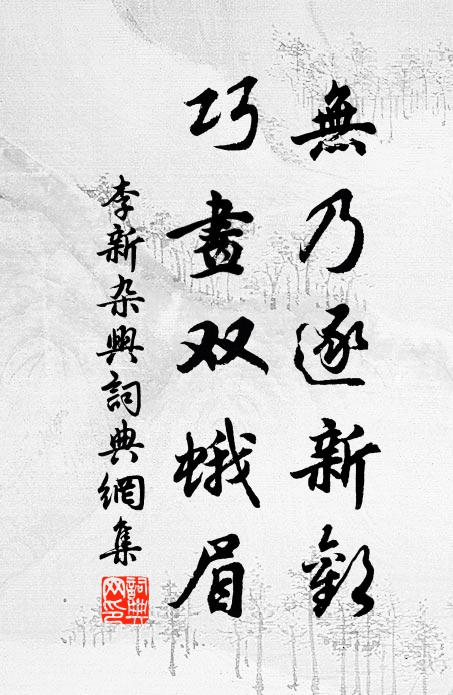 無乃逐新歡
巧畫双蛾眉
李新杂興詞典網集
詞典
网印